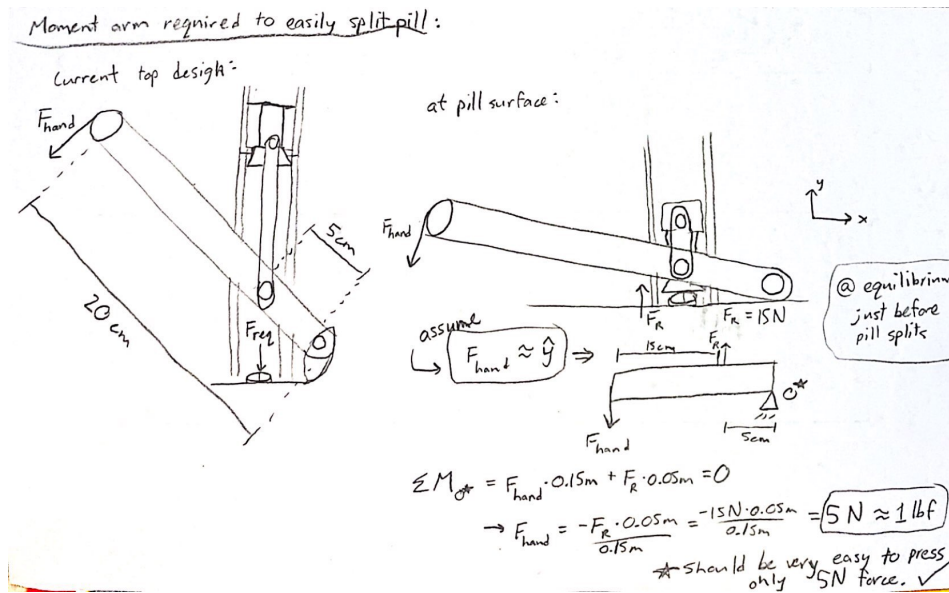 Moment arm required to easily split pill:
Current top design:
F_hand
5cm
20 cm
F_req
at pill surface:
F_hand
y
x
F_R
F_R = 15N
@ equilibrium
just before
pill splits
assume
F_hand ≈ ŷ ⇒
15cm
F_R
O*
5cm
F_hand
ΣM_O* = F_hand · 0.15m + F_R · 0.05m = 0
→ F_hand = -F_R · 0.05m / 0.15m = -15N · 0.05m / 0.15m = 5 N ≈ 1 lbf
* should be very easy to press
only 5N force. ✓